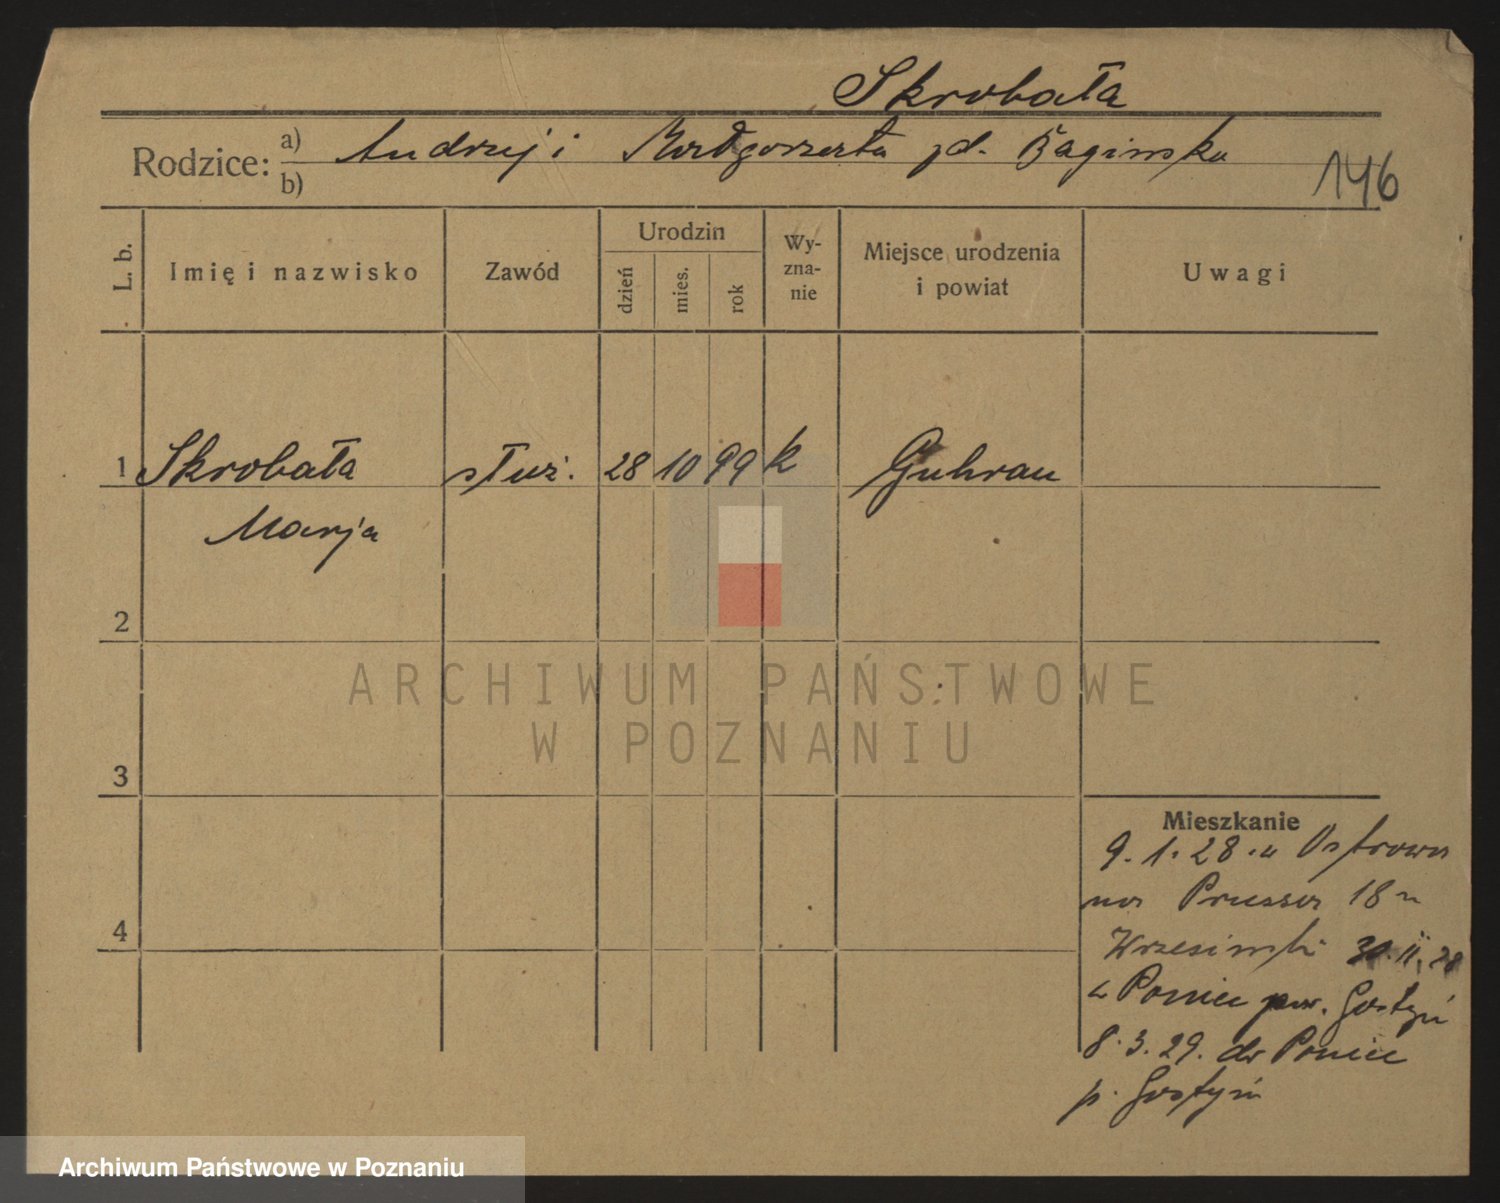 Skrobała
Rodzice: a) Andrzej i Małgorzata zd. Bagińska
b)
146
L. b. Imię i nazwisko Zawód Urodzin dzień mies. rok Wy-zna-nie Miejsce urodzenia i powiat Uwagi
1 Skrobała służ. 28 10 99 k Guhrau
Marja
2
3
4
Mieszkanie
9. 1. 28. z Ostrowa
na Prusa 18 u
Wrzesiński 30. 11. 28
z Poniec pow. Gostyń
8. 3. 29. do Poniec
p. Gostyń
ARCHIWUM PAŃSTWOWE
W POZNANIU
Archiwum Państwowe w Poznaniu